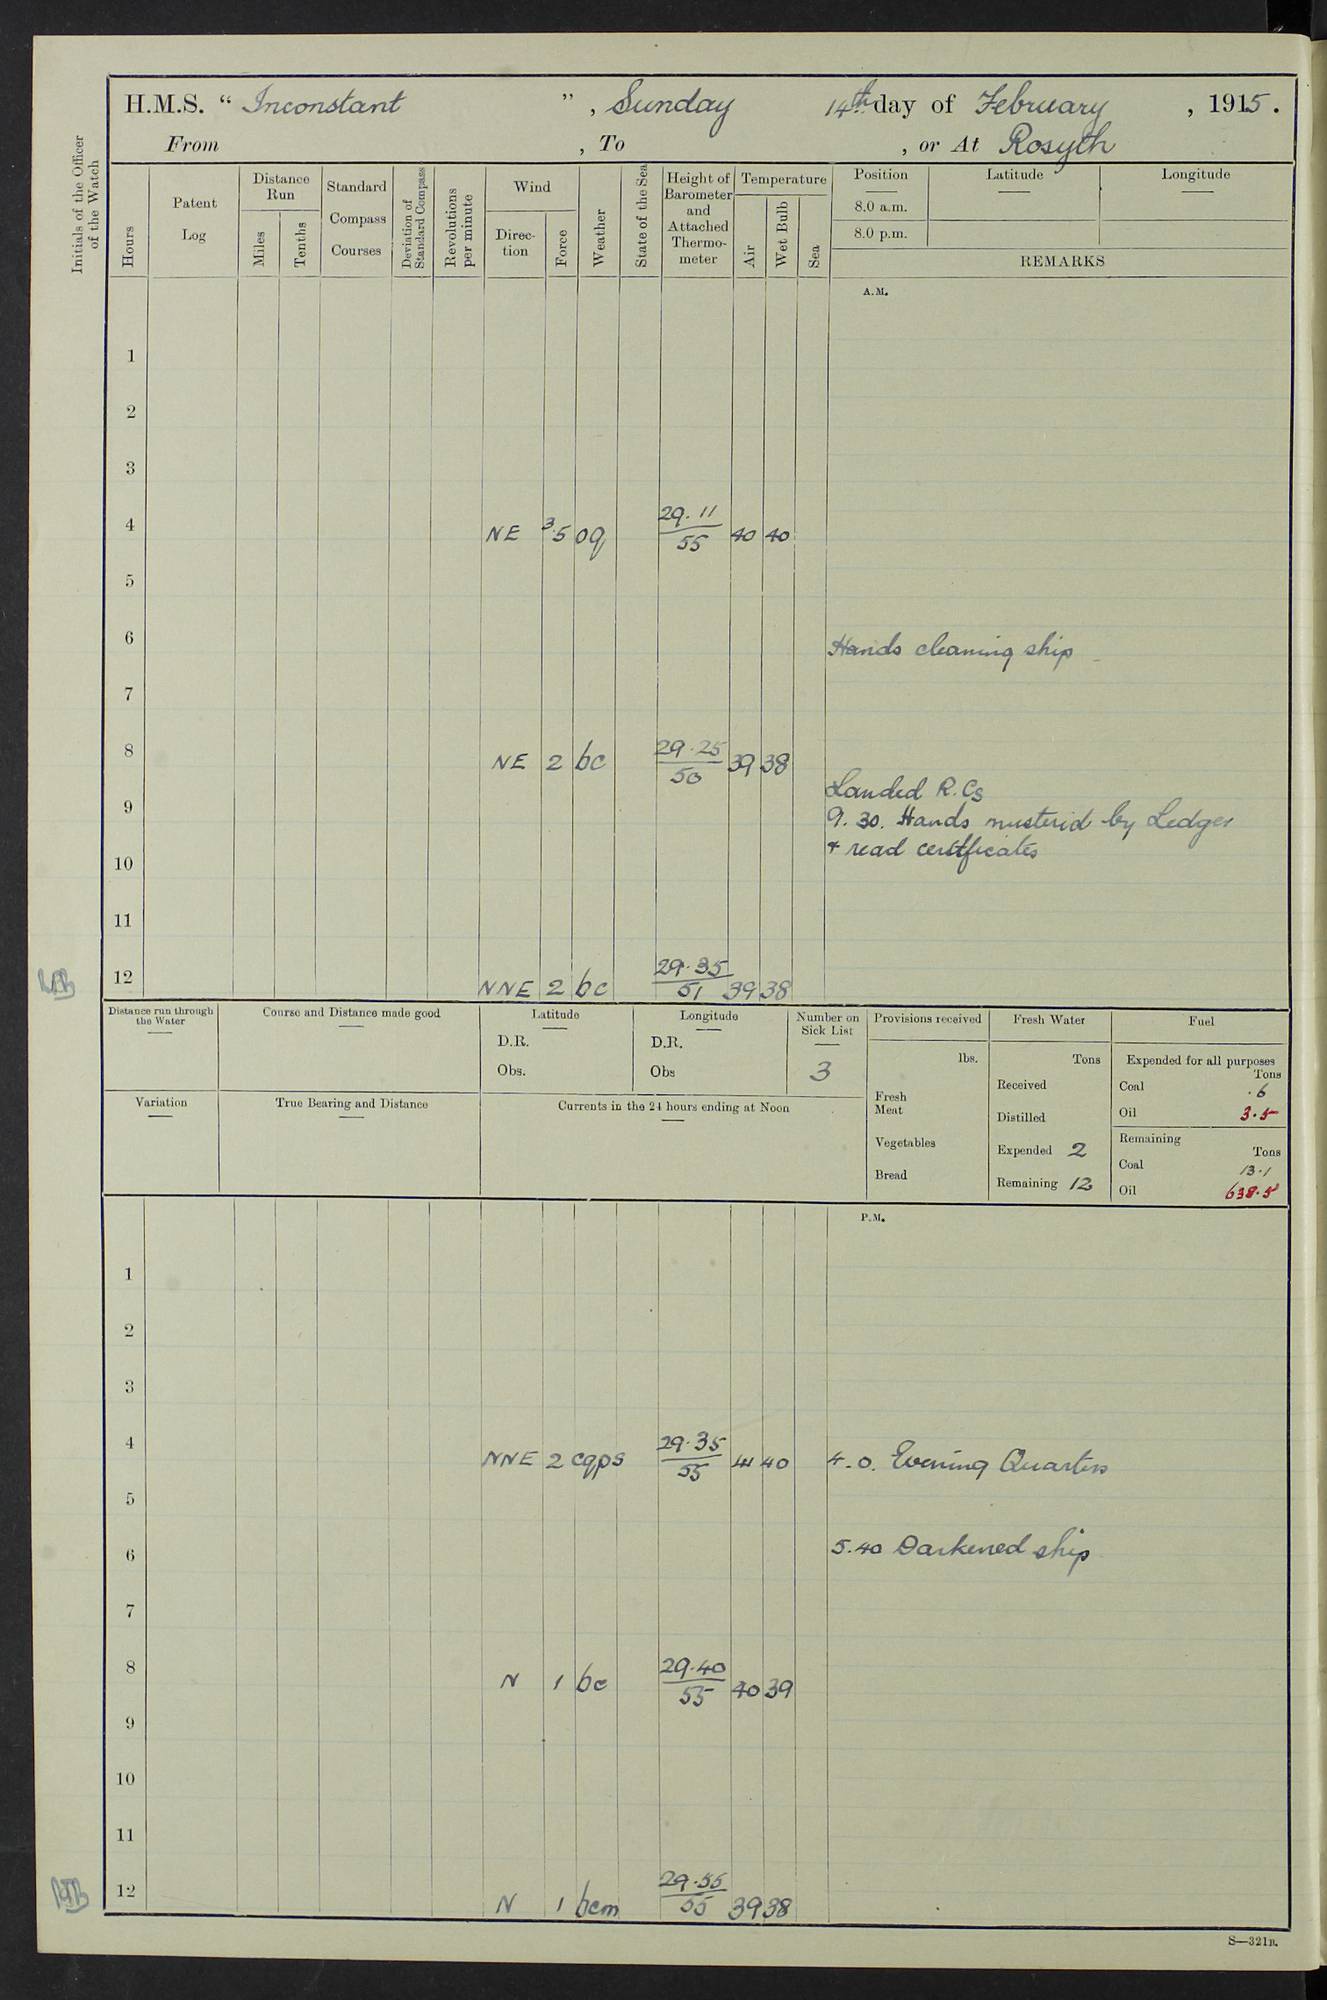 H.M.S. " Inconstant ", Sunday 14th day of February, 1915.
From , To , or At Rosyth
Initials of the Officer of the Watch
Hours
Patent Log
Distance Run
Miles
Tenths
Standard Compass Courses
Deviation of Standard Compass
Revolutions per minute
Wind
Direc-tion
Force
Weather
State of the Sea
Height of Barometer and Attached Thermo-meter
Temperature
Air
Wet Bulb
Sea
Position Latitude Longitude
8.0 a.m.
8.0 p.m.
REMARKS
A.M.
1
2
3
4 NE 3.5 oq 29.11 55 40 40
5
6 Hands cleaning ship
7
8 NE 2 bc 29.25 50 39 38
Landed R.Cs
9 9.30. Hands musterid by Ledger
10 + read certificates
11
12 NNE 2 bc 29.35 51 39 38
Distance run through the Water
Course and Distance made good
Latitude
D.R.
Obs.
Longitude
D.R.
Obs
Number on Sick List
3
Provisions received
lbs.
Fresh Meat
Vegetables
Bread
Fresh Water
Tons
Received
Distilled
Expended 2
Remaining 12
Fuel
Expended for all purposes
Tons
Coal .6
Oil 3.5
Remaining
Tons
Coal 13.1
Oil 638.5
Variation
True Bearing and Distance
Currents in the 24 hours ending at Noon
P.M.
1
2
3
4 NNE 2 cqps 29.35 55 41 40 4.0. Evening Quarters
5
6 5.40 Darkened ship
7
8 N 1 bc 29.40 55 40 39
9
10
11
12 N 1 bcm 29.55 55 39 38
S—321B.